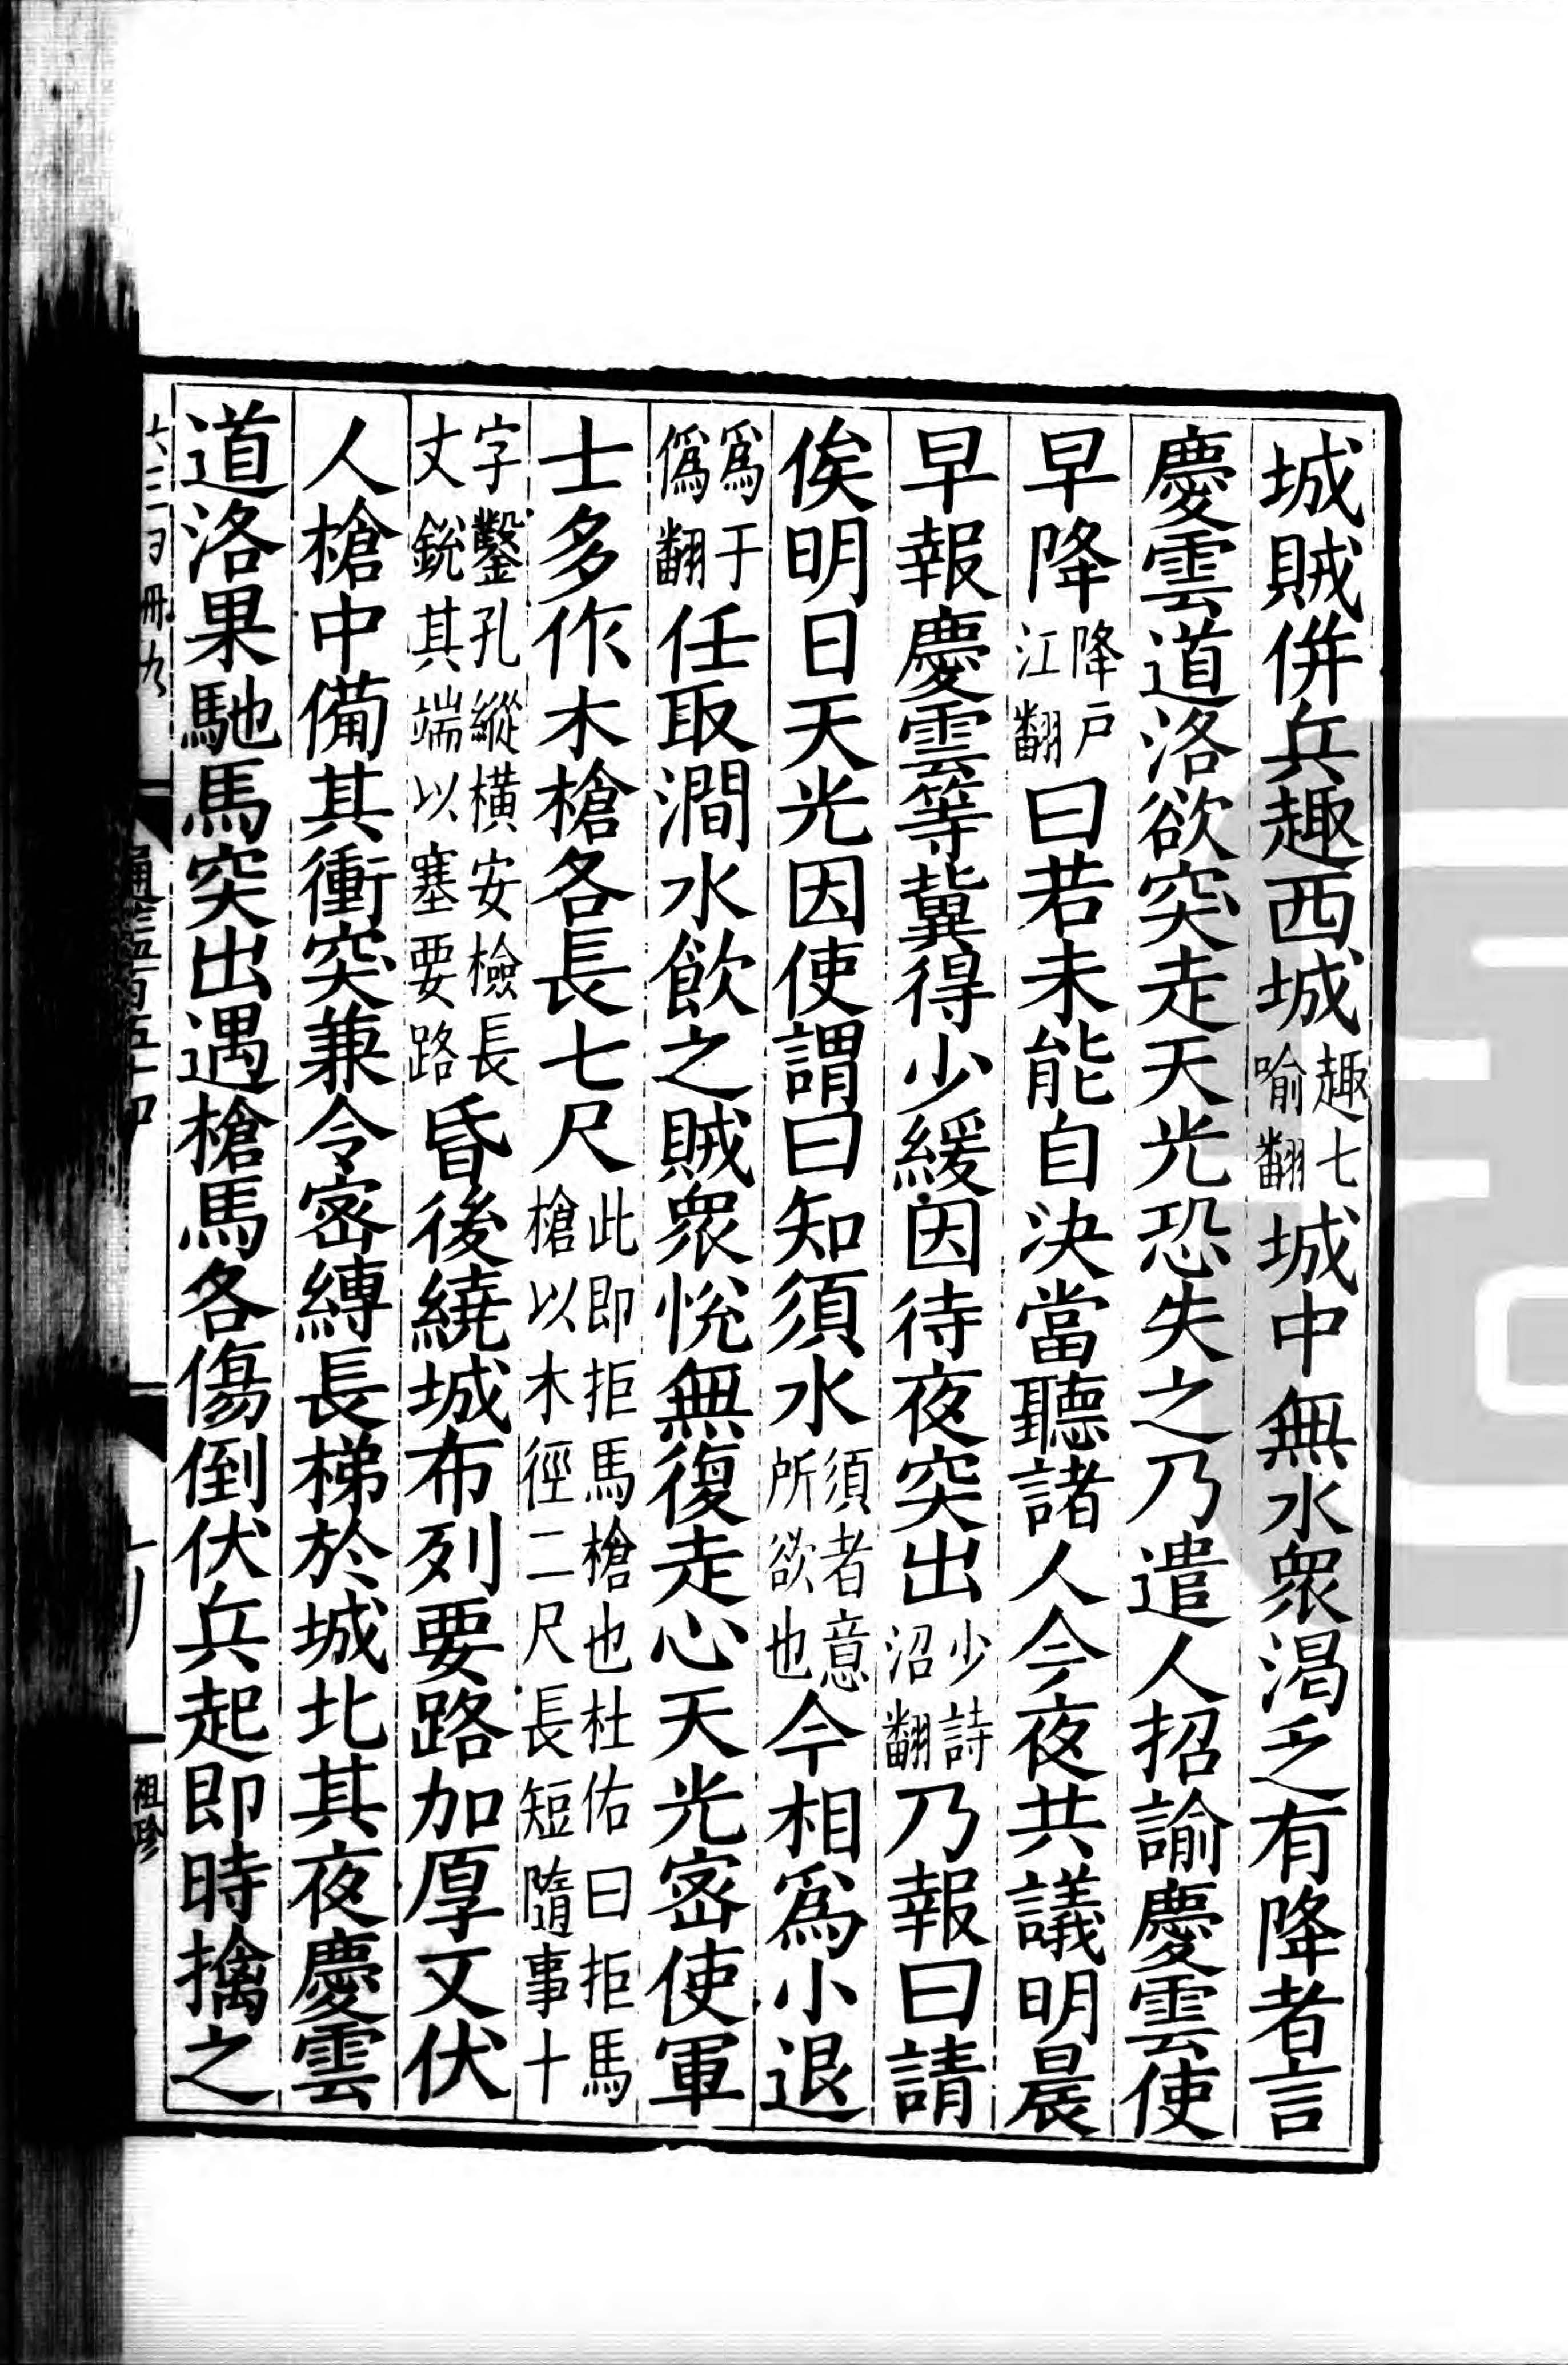 城賊併兵趣西城趣七喻翻城中無水衆渴乏有降者言
慶雲道洛欲突走天光恐失之乃遣人招諭慶雲使
早降降戶江翻曰若未能自決當聽諸人今夜共議明晨
早報慶雲等冀得少緩因待夜突出少詩沼翻乃報曰請
俟明日天光因使謂曰知須水須者意所欲也今相爲小退
爲于僞翻任取澗水飲之賊衆悅無復走心天光密使軍
士多作木槍各長七尺此即拒馬槍也杜佑曰拒馬槍以木徑二尺長短隨事十
字鑿孔縱橫安檢長丈銳其端以塞要路昏後繞城布列要路加厚又伏
人槍中備其衝突兼令密縛長梯於城北其夜慶雲
道洛果馳馬突出遇槍馬各傷倒伏兵起即時擒之
祖珍